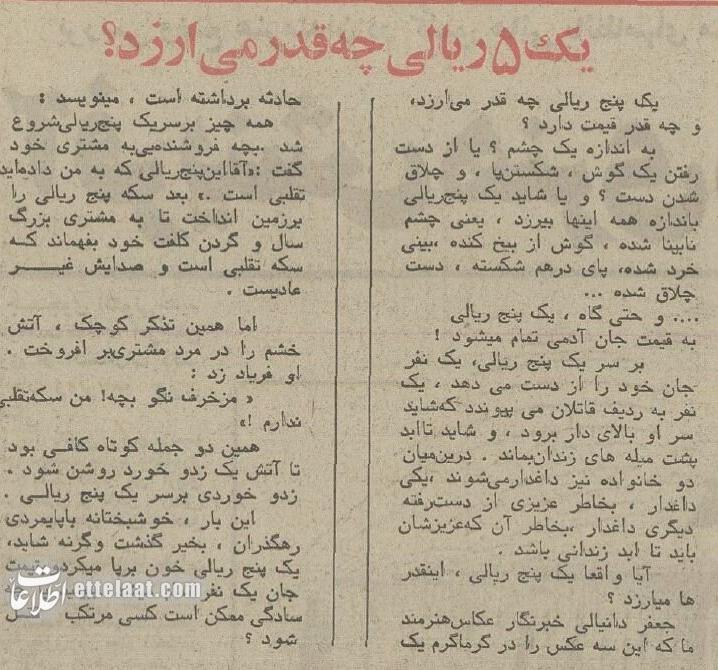 یک ۵ ریالی چه قدر می ارزد؟
یک پنج ریالی چه قدر می‌ارزد،
و چه قدر قیمت دارد ؟
به اندازه یک چشم ؟ یا از دست
رفتن یک گوش ، شکستن‌پا ، و چلاق
شدن دست ؟ و یا شاید یک پنج‌ریالی
باندازه همه اینها بیرزد ، یعنی چشم
نابینا شده ، گوش از بیخ کنده ،بینی
خرد شده، پای درهم شکسته ، دست
چلاق شده ...
.... و حتی گاه ، یک پنج ریالی
به قیمت جان آدمی تمام میشود !
بر سر یک پنج ریالی، یک نفر
جان خود را از دست می دهد ، یک
نفر به ردیف قاتلان می پیوندد که‌شاید
سر او بالای دار برود ، و شاید تاابد
پشت میله های زندان‌بماند . درین‌میان
دو خانواده نیز داغدارمی‌شوند ،یکی
داغدار ، بخاطر عزیزی از دست‌رفته
دیگری داغدار ،بخاطر آن که‌عزیزشان
باید تا ابد زندانی باشد .
آیا واقعا یک پنج ریالی ، اینقدر
ها میارزد ؟
جعفر دانیالی خبرنگار عکاس‌هنرمند
ما که این سه عکس را در گرماگرم یک
حادثه برداشته است ، مینویسد :
همه چیز برسریک پنج‌ریالی‌شروع
شد .بچه فروشنده‌یی‌به مشتری خود
گفت :«آقااین‌پنج‌ریالی که به من داده‌اید
تقلبی است .» بعد سکه پنج ریالی را
برزمین انداخت تا به مشتری بزرگ
سال و گردن کلفت خود بفهماند که
سکه تقلبی است و صدایش غیر
عادیست .
اما همین تذکر کوچک ، آتش
خشم را در مرد مشتری‌بر افروخت .
او فریاد زد :
« مزخرف نگو بچه! من سکه‌تقلبی
ندارم !»
همین دو جمله کوتاه کافی بود
تا آتش یک زدو خورد روشن شود .
زدو خوردی برسر یک پنج ریالی .
این بار ، خوشبختانه باپایمردی
رهگذران ، بخیر گذشت وگرنه شاید،
یک پنج ریالی خون برپا میکرد، قیمت
جان یک نفر
سادگی ممکن است کسی مرتکب
شود ؟
اطلاعات
ettelaat.com